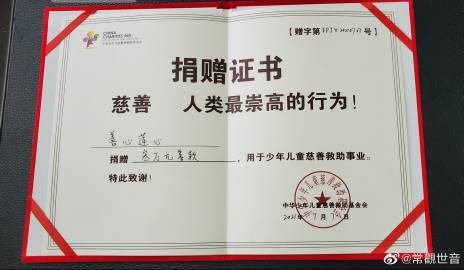 CHINA
CHARITIES AID
【赠字第 号】
捐赠证书
慈善 人类最崇高的行为!
善心莲心
捐赠 叁万元善款,用于少年儿童慈善救助事业。
特此致谢!
中华少年儿童慈善救助基金会
2021年7月7日
@常觀世音